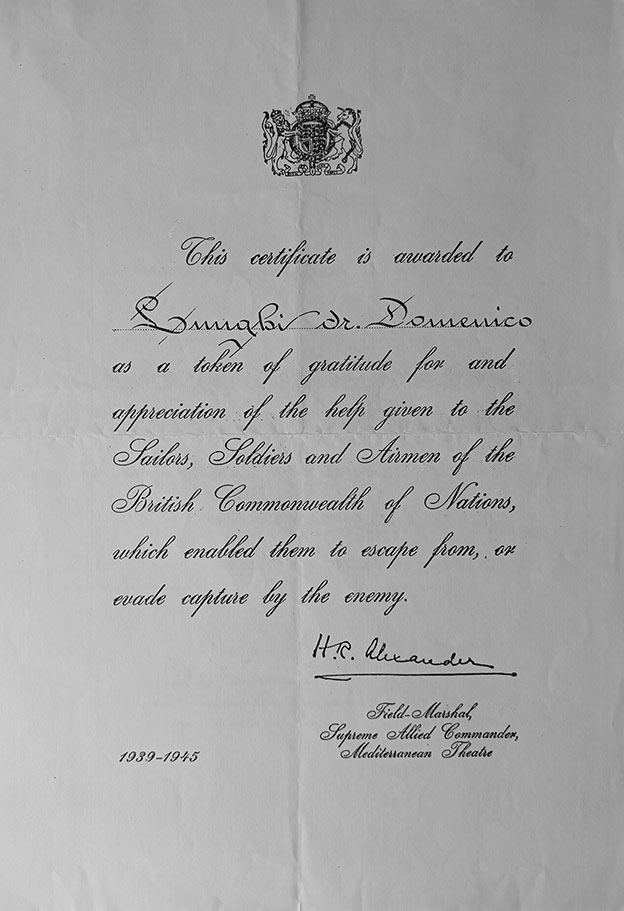 This certificate is awarded to
Lunghi dr. Domenico
as a token of gratitude for and
appreciation of the help given to the
Sailors, Soldiers and Airmen of the
British Commonwealth of Nations,
which enabled them to escape from, or
evade capture by the enemy.
H.R. Alexander
Field-Marshal,
Supreme Allied Commander,
Mediterranean Theatre
1939-1945